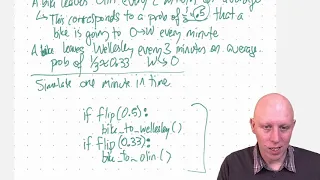 A bike leaves Olin every 2 minutes on average
↳ This corresponds to a prob of ½ = 0.5 that a
bike is going to O→W every minute
A bike leaves Wellesley every 3 minutes on average
prob of 1/3 ≈ 0.33 W→O
Simulate one minute in time
if flip(0.5):
bike_to_wellesley()
if flip(0.33):
bike_to_olin()